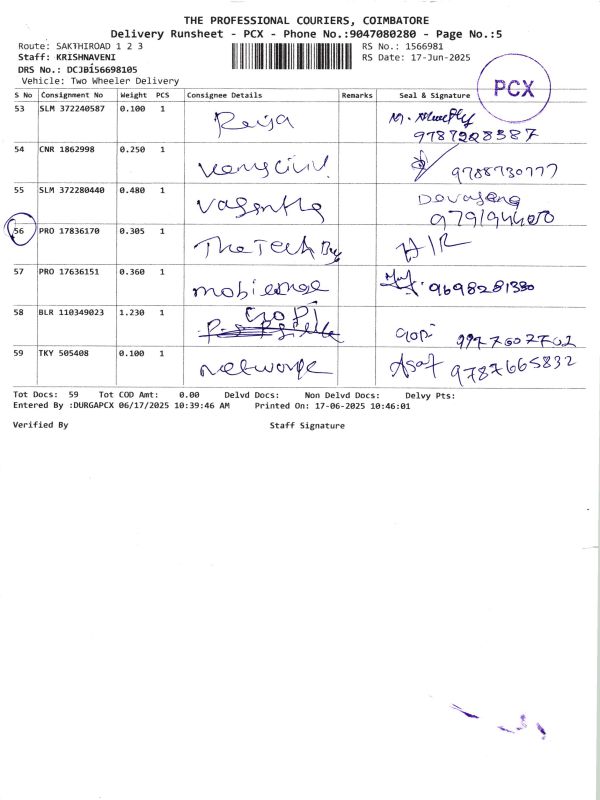 THE PROFESSIONAL COURIERS, COIMBATORE
Delivery Runsheet - PCX - Phone No.:9047080280 - Page No.:5
Route: SAKTHIROAD 1 2 3
RS No.: 1566981
Staff: KRISHNAVENI
RS Date: 17-Jun-2025
DRS No.: DCJB156698105
Vehicle: Two Wheeler Delivery
PCX
S No Consignment No Weight PCS Consignee Details Remarks Seal & Signature
53 SLM 372240587 0.100 1
54 CNR 1862998 0.250 1
9788730777
55 SLM 372280440 0.480 1
56 PRO 17836170 0.305 1 The Tech
57 PRO 17636151 0.360 1
9698281380
58 BLR 110349023 1.230 1 Gopi Gopi
59 TKY 505408 0.100 1 9787665832
Tot Docs: 59 Tot COD Amt: 0.00 Delvd Docs: Non Delvd Docs: Delvy Pts:
Entered By :DURGAPCX 06/17/2025 10:39:46 AM Printed On: 17-06-2025 10:46:01
Verified By Staff Signature